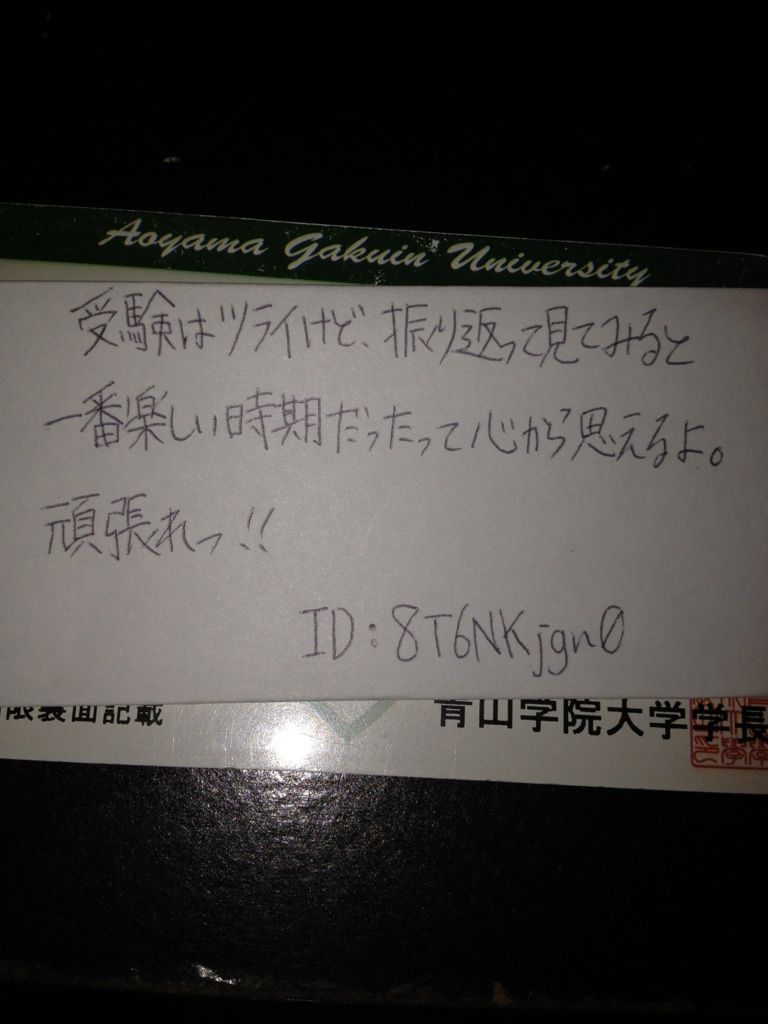 Aoyama Gakuin University
受験はツライけど、振り返って見てみると
一番楽しい時期だったって心から思えるよ。
頑張れっ!!
ID:8T6NKjgn0
限裏面記載
青山学院大学学長